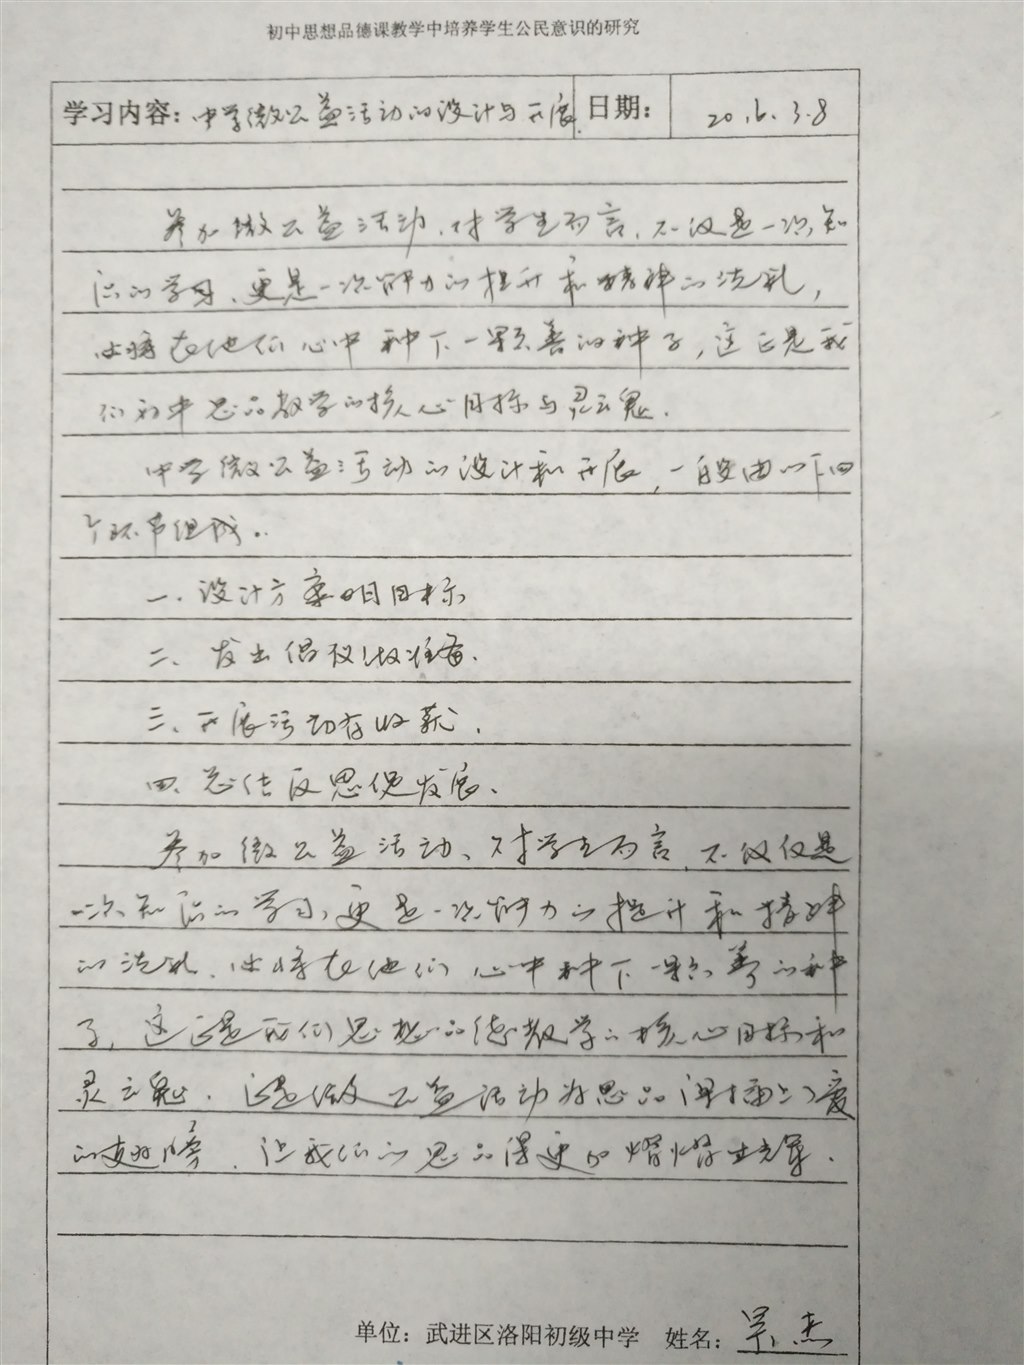 初中思想品德课教学中培养学生公民意识的研究
学习内容：中学微公益活动的设计与开展 日期： 2016.3.8
参加微公益活动，对学生而言，不仅是一次知
识的学习、更是一次能力的提升和精神的洗礼，
必将在他们心中种下一颗善的种子，这正是我
们初中思品教学的核心目标与灵魂．
中学微公益活动的设计和开展，一般由以下四
个环节组成：
一、设计方案明目标
二、发出倡议做准备．
三、开展活动有收获．
四、总结反思促发展．
参加微公益活动、对学生而言，不仅仅是
一次知识的学习，更是一次能力的提升和精神
的洗礼．必将在他们心中种下一颗善的种
子，这正是我们思想品德教学的核心目标和
灵魂．正是微公益活动为思品课插上了爱
的翅膀，让我们的思品课更加熠熠生辉．
单位：武进区洛阳初级中学 姓名：杰